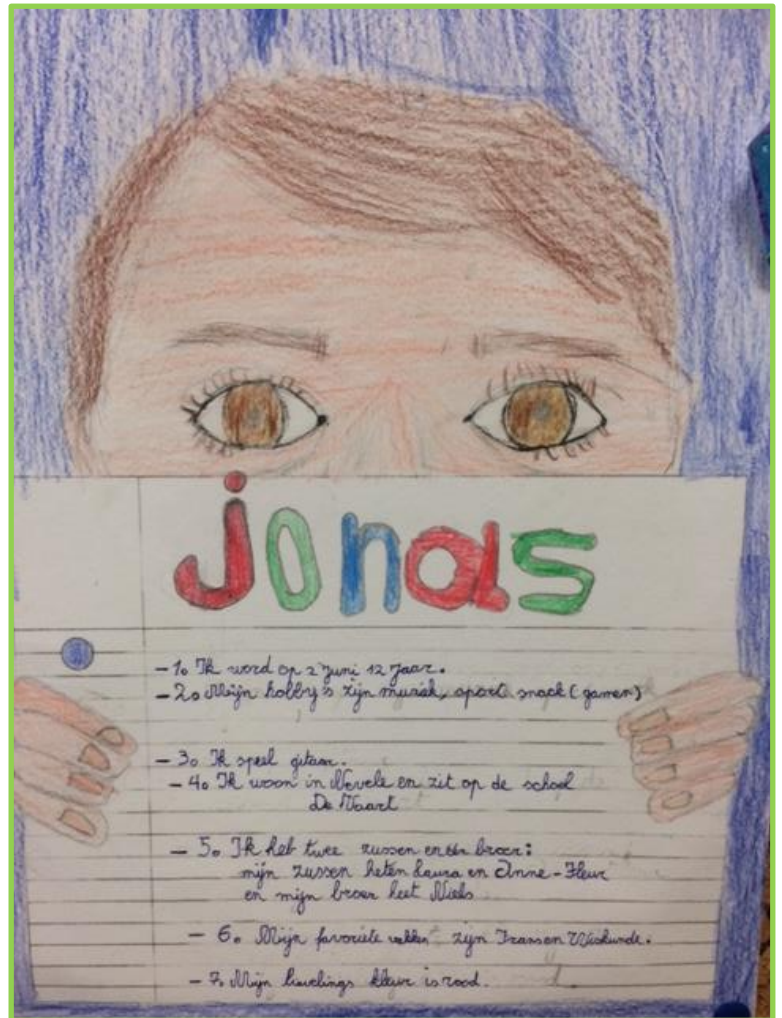 jonas
- 1. Ik word op 2 juni 12 jaar.
- 2. Mijn hobby's zijn muziek, sport, snack (gamen)
- 3. Ik speel gitaar.
- 4. Ik woon in Nevele en zit op de school
De Vaart
- 5. Ik heb twee zussen en één broer:
mijn zussen heten Laura en Anne-Fleur
en mijn broer heet Niels
- 6. Mijn favoriete vakken zijn Frans en Wiskunde.
- 7. Mijn lievelings kleur is rood.